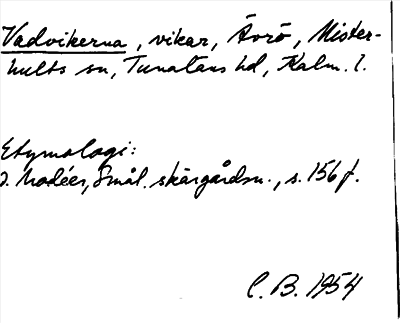 Vadvikerna, vikar, Ävrö, Mister-
hults sn, Tunaläns hd, Kalm. l.
Etymologi:
J. Modéer, Smål. skärgårdsn., s. 156 f.
C. B. 1954